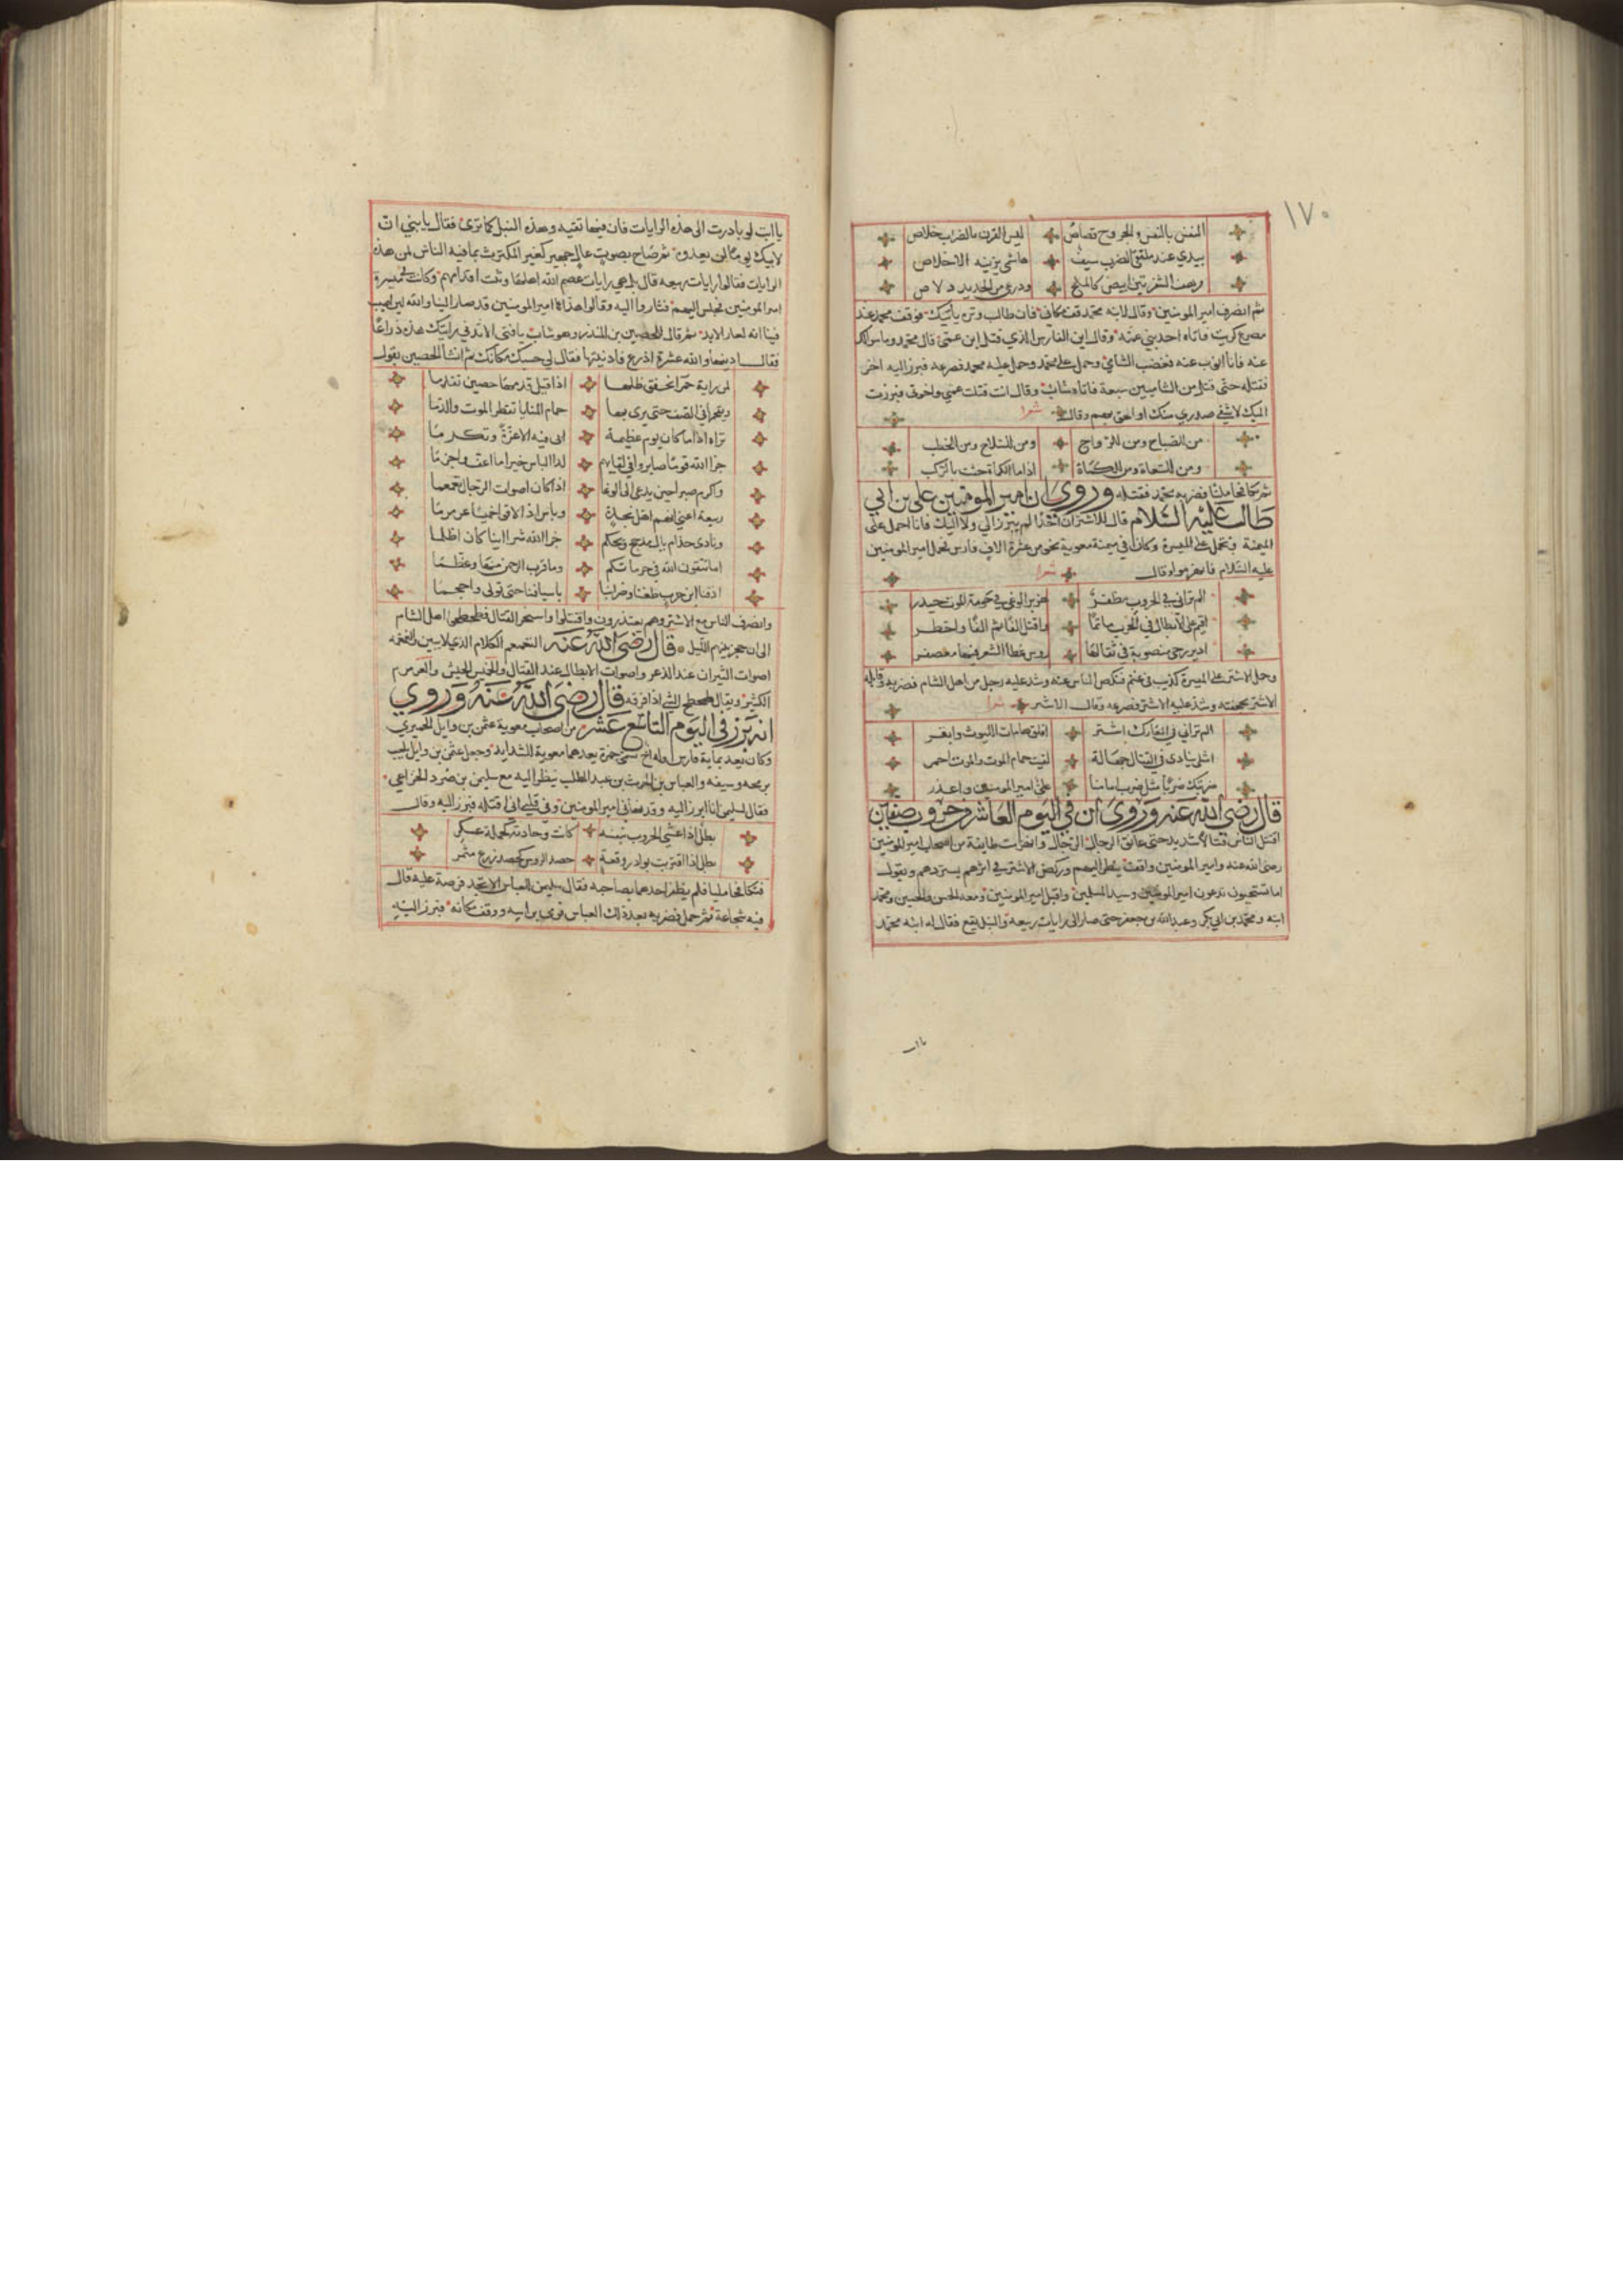 ١٧٠
النفس بالنفس والجروح قصاص ليس للقرن بالضراب خلاص
بيدي عند ملتقى الضرب سيف هاشمي يزينه الاخلاص
مرهف الشفرتين ابيض كالملح ودرعي من الحديد دلاص
ثم انصرف امير المومنين وقال لابنه محمد قف مكاني فان طالب وتره ياتيك فوقف محمد عند
مصرع كريب فاتاه احد بني عمه وقال اين الفارس الذي قتل ابن عمي قال محمد وما سوالك
عنه فانا انوب عنه فغضب الشامي وحمل على محمد وحمل عليه محمد فصرعه فبرز اليه اخر
فقتله حتى قتل من الشاميين سبعة فاتاه شاب وقال انت قتلت عمي واخوتي فبرزت
اليك لاشفي صدري منك او الحق بهم وقال شعرا
من للصباح ومن للرواح ومن للسلاح ومن للخطب
ومن للسعاة ومن للكماة اذا ما الكماة جثت بالركب
ثم تكافحا مليا فضربه محمد فقتله وروي ان امير المومنين علي بن ابي
طالب عليه السلام قال للاشتر ان لم يبرز الي ولا اليك فانا احمل على
الميمنة وتحمل على الميسرة وكان في ميمنة معوية نحو من عشرة الاف فارس فحمل امير المومنين
عليه السلام فانهزموا وقال شعرا
الم تراني في الحروب مظفر هزبر الوغى في حومة الموت حيدر
اقيم على الابطال في الحرب ماتما واقتل الفا ثم الفا واخطر
ادير رحى منصوبة في ثقالها روس عظا الشعر فيها معصفر
وحمل الاشتر على الميسرة كذيب في غنم فنكص الناس عنه وشد عليه رجل من اهل الشام فضربه فاتقاه
الاشتر بحجفته وشد عليه الاشتر فصرعه وقال الاشتر شعرا
الم تراني في المعارك اشتر افلق هامات الليوث وابقر
امثلي ينادى في القتال جهالة لقيت حمام الموت والموت احمر
ضربتك ضربا مثل ضرب امامنا علي امير المومنين واعذر
قال رضي الله عنه وروي ان في اليوم العاشر وحروب صفين
اقتتل الناس قتالا شديدا حتى عانق الرجال الرجال وانهزمت طايفة من اصحاب امير المومنين
رضي الله عنه وامير المومنين واقف ينظر اليهم وركض الاشتر في اثرهم يستردهم ويقول
اما تستحيون تدعون امير المومنين وسيد المسلمين واقبل امير المومنين ومعه الحسن والحسين ومحمد
ابنه ومحمد بن ابي بكر وعبد الله بن جعفر حتى صار الى رايات ربيعة والنبل يقع فقال له ابنه محمد
يا ابت
يا ابت لو بادرت الى هذه الرايات فان فيها تقيه وهذه النبل كما ترى فقال يا بني ان
لابيك يوما لن يعدوه ثم صاح بصوت عال جهير كغير المكترث بما فيه الناس لمن هذه
الرايات فقالوا رايات ربيعه قال بل هي رايات عصم الله اهلها وثبت اقدامهم وكانت في ميسرة
امير المومنين فجلس اليهم فثاروا اليه وقالوا هذا امير المومنين قد صار الينا والله لين اصيب
فينا انه لعار الابد ثم قال للحصين بن المنذر وهو شاب يا فتى الا تدني رايتك هذه ذراعا
فقال ادنيها والله عشرة اذرع فادنيتها فقال لي حسبك مكانك ثم انشا الحصين يقول
لمن راية حمرا يخفق ظلها اذا قيل قدمها حصين تقدما
ويقحمها في الصف حتى يرى بها حمام المنايا تقطر الموت والدما
تراه اذا ما كان يوم عظيمة ابى فيه الا عزة وتكرما
جزا الله قوما صابروا في لقايهم لدا الباس خيرا ما اعف واكرما
واكرم صبرا حين يدعى الى الوغا اذا كان اصوات الرجال تغمغما
ربيعة اعني انهم اهل نجدة وباس اذا لاقى خميسا عرمرما
ونادى جذام يال مذحج ويحكم جزا الله شرا اينا كان اظلما
اما تتقون الله في حرماتكم وما قرب الرحمن منها وعظما
اذقنا ابن حرب طعننا وضرابنا باسيافنا حتى تولى واحجما
وانصرف الناس مع الاشتر وهم يعتذرون واقتتلوا واستحر القتال فطحطحوا اهل الشام
الى ان حجز بينهم الليل قال رضي الله عنه التغمغم الكلام الذي لا يبين والغمغمه
اصوات الثيران عند الذعر واصوات الابطال عند القتال والخميس الجيش والعرمرم
الكثير ويقال طحطح الشي اذا فرقه قال رضي الله عنه وروي
انه برز في اليوم التاسع عشر من اصحاب معوية عثمن بن وايل الحميري
وكان يعد بماية فارس وله اخ يسمى حمزة يعدهما معوية للشدايد وجعل عثمن بن وايل يلعب
برمحه وسيفه والعباس بن الحرث بن عبد المطلب ينظر اليه مع سليمن بن صرد الخزاعي
فقال لسليمن انا ابرز اليه وقد نهاني امير المومنين وفي قلبي اني اقتله فبرز اليه وقال
بطل اذا غشي الحروب بنفسه كانت وحادته كحملة عسكر
بطل اذا افترت بوادر وقعة حصد الروس كحصد زرع مثمر
فتكافحا مليا فلم يظفر احدهما بصاحبه فقال سليمن للعباس الا تجد فرصة عليه قال
فيه شجاعة ثم حمل فضربه بعد ذلك العباس فرمى براسه ووقف مكانه فبرز اليه